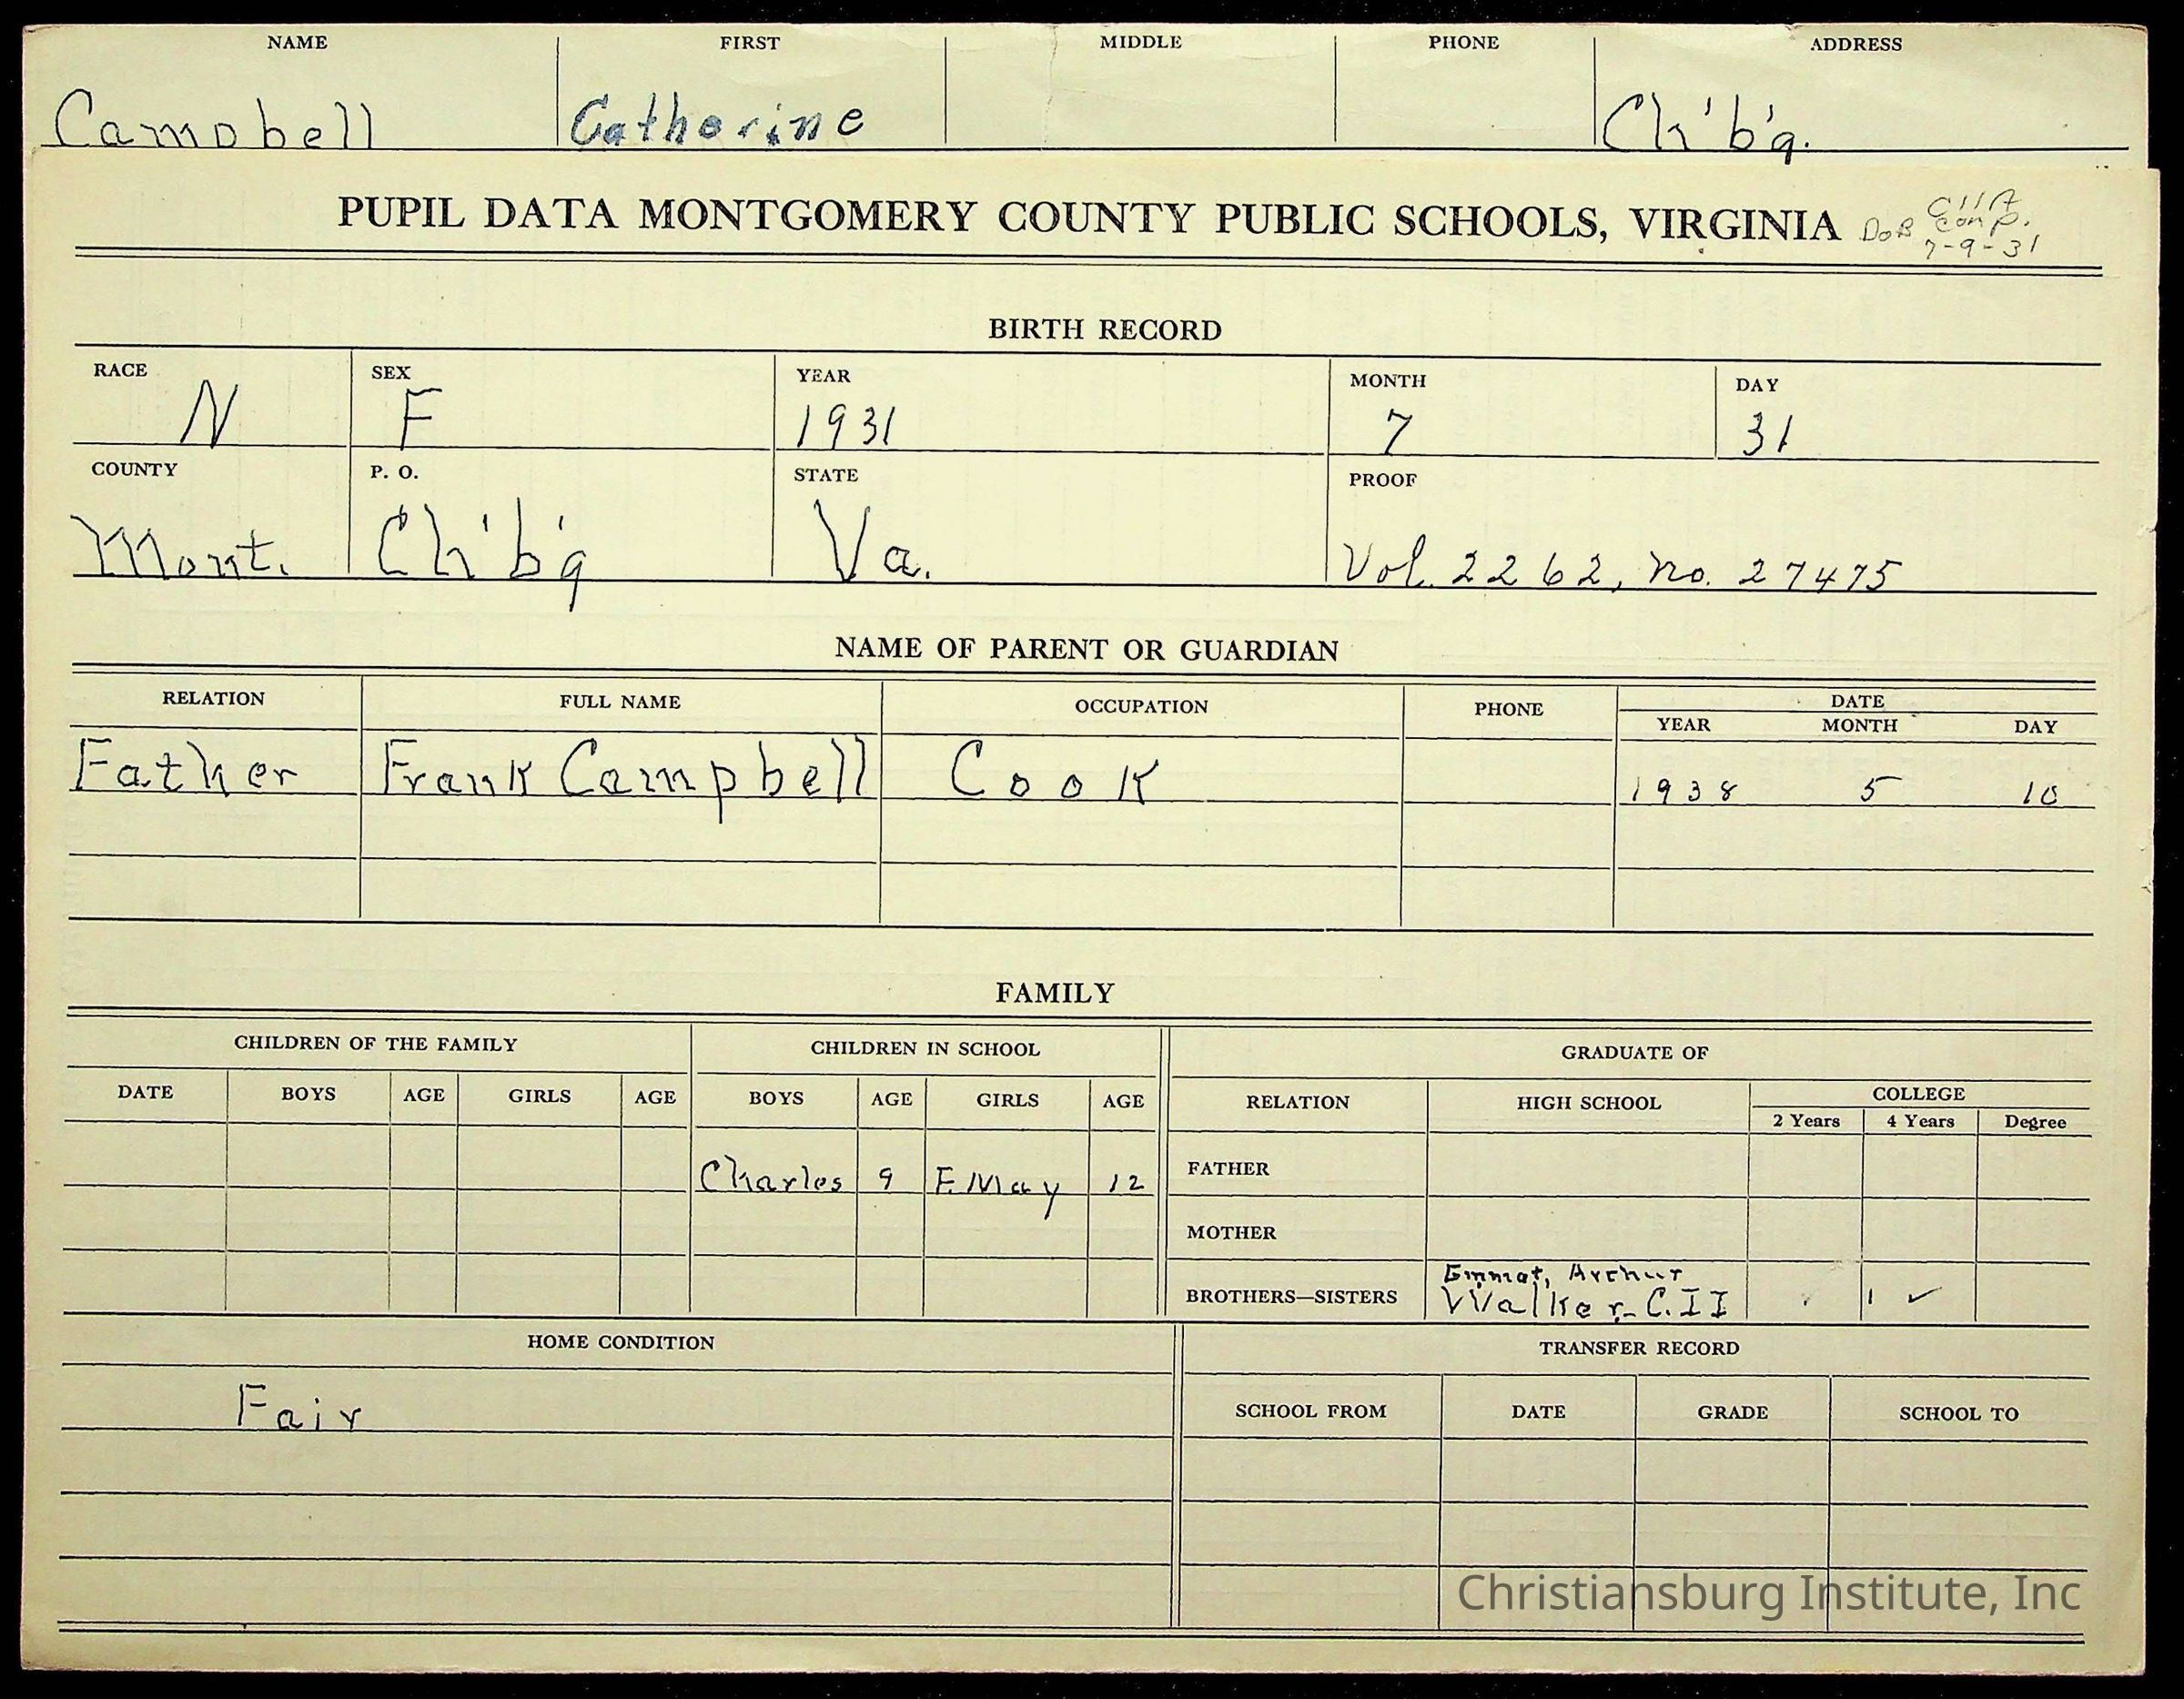 NAME FIRST MIDDLE PHONE ADDRESS
Campbell Catherine Ch'b'g.
PUPIL DATA MONTGOMERY COUNTY PUBLIC SCHOOLS, VIRGINIA
DoB Comp.
7-9-31
BIRTH RECORD
RACE SEX YEAR MONTH DAY
N F 1931 7 31
COUNTY P. O. STATE PROOF
Mont. Ch'b'g Va. Vol. 2262, No. 27475
NAME OF PARENT OR GUARDIAN
RELATION FULL NAME OCCUPATION PHONE DATE
YEAR MONTH DAY
Father Frank Campbell Cook 1938 5 10
FAMILY
CHILDREN OF THE FAMILY CHILDREN IN SCHOOL GRADUATE OF
DATE BOYS AGE GIRLS AGE BOYS AGE GIRLS AGE RELATION HIGH SCHOOL COLLEGE
2 Years 4 Years Degree
Charles 9 F. May 12 FATHER
MOTHER
Emmat, Arthur
BROTHERS—SISTERS Walker - C.II 1 ✓
HOME CONDITION TRANSFER RECORD
Fair SCHOOL FROM DATE GRADE SCHOOL TO
Christiansburg Institute, Inc